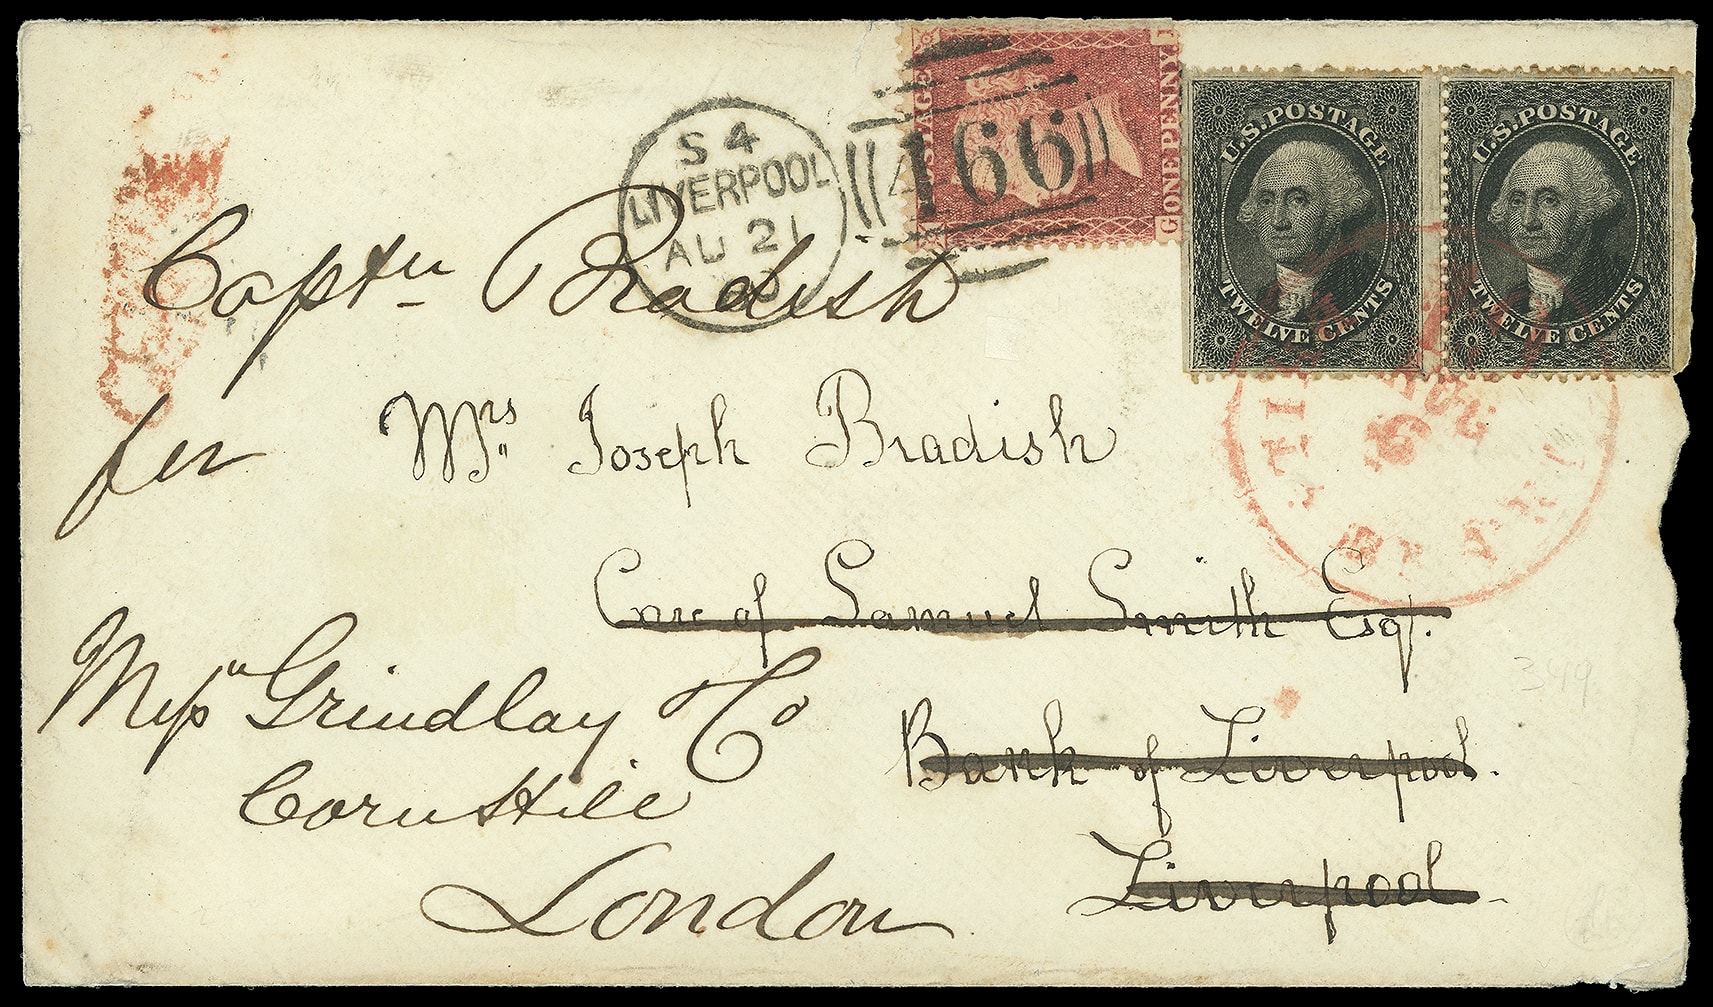 POSTAGE
ONE PENNY
G
J
U.S. POSTAGE
TWELVE CENTS
U.S. POSTAGE
TWELVE CENTS
S4
LIVERPOOL
AU 21
466
Captn Bradish
for Mrs. Joseph Bradish
Care of Samuel Smith Esq.
Messrs Grindlay & Co
Bank of Liverpool.
Cornhill
Liverpool.
London
349